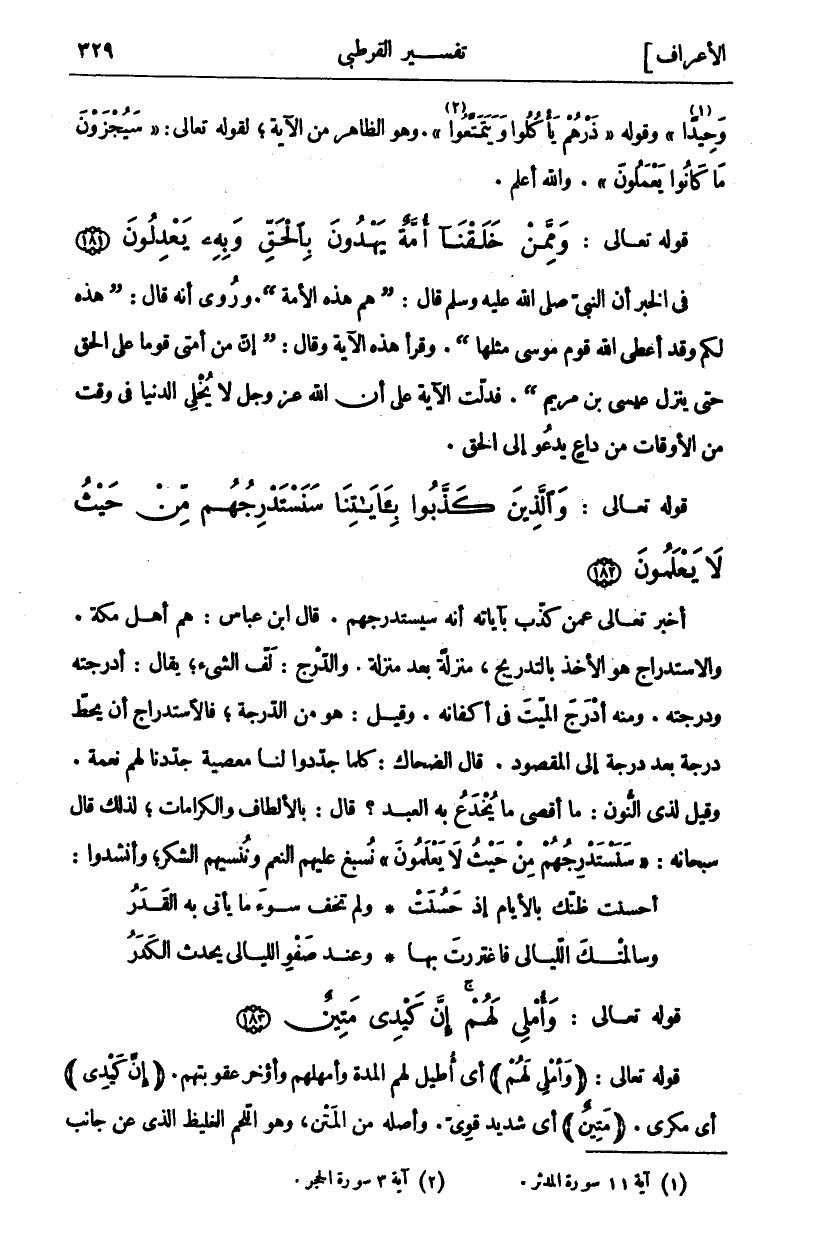 الأعراف] تفسير القرطبي ٣٢٩
وَحِيدًا (١) » وقوله « ذَرْهُمْ يَأْكُلُوا وَيَتَمَتَّعُوا (٢) » . وهو الظاهر من الآية ؛ لقوله تعالى : « سَيُجْزَوْنَ
مَا كَانُوا يَعْمَلُونَ » . والله أعلم .
قوله تعالى : وَمِمَّنْ خَلَقْنَآ أُمَّةٌ يَهْدُونَ بِٱلْحَقِّ وَبِهِۦ يَعْدِلُونَ ١٨١
فى الخبر أن النبىّ صلى الله عليه وسلم قال : ” هم هذه الأمة “ . ورُوى أنه قال : ” هذه
لكم وقد أعطى الله قوم موسى مثلها “ . وقرأ هذه الآية وقال : ” إنّ من أمتى قوما على الحق
حتى ينزل عيسى بن مريم “ . فدلّت الآية على أن الله عز وجل لا يُخْلِى الدنيا فى وقت
من الأوقات من داعٍ يدعُو إلى الحق .
قوله تعالى : وَٱلَّذِينَ كَذَّبُوا بِـَٔايَـٰتِنَا سَنَسْتَدْرِجُهُم مِّنْ حَيْثُ
لَا يَعْلَمُونَ ١٨٢
أخبر تعالى عمن كذّب بآياته أنه سيستدرجهم . قال ابن عباس : هم أهل مكة .
والاستدراج هو الأخذ بالتدريج ، منزلة بعد منزلة . والدَّرْج : لَفّ الشىء ؛ يقال : أدرجته
ودرجته . ومنه أدْرَجَ الميّتَ فى أكفانه . وقيل : هو من الدّرجة ؛ فالاستدراج أن يحطّ
درجة بعد درجة إلى المقصود . قال الضحاك : كلما جدّدوا لنا معصية جدّدنا لهم نعمة .
وقيل لذى النُّون : ما أقصى ما يُخْدَعُ به العبد ؟ قال : بالألطاف والكرامات ؛ لذلك قال
سبحانه : « سَنَسْتَدْرِجُهُمْ مِنْ حَيْثُ لَا يَعْلَمُونَ » نُسبغ عليهم النعم ونُنسيهم الشكر ؛ وأنشدوا :
أحسنت ظنّك بالأيام إذ حَسُنَتْ * ولم تخف سوءَ ما يأتى به القَدَرُ
وسالمتْكَ اللّيالى فاغتررتَ بها * وعند صَفْوِ الليالى يحدث الكَدَرُ
قوله تعالى : وَأُمْلِى لَهُمْۚ إِنَّ كَيْدِى مَتِينٌ ١٨٣
قوله تعالى : ﴿ وَأُمْلِى لَهُمْ ﴾ أى أُطيل لهم المدة وأمهلهم وأؤخر عقوبتهم . ﴿ إِنَّ كَيْدِى ﴾
أى مكرى . ﴿ مَتِينٌ ﴾ أى شديد قوىّ . وأصله من المَتْن ، وهو اللّحم الغليظ الذى عن جانب
(١) آية ١١ سورة المدثر . (٢) آية ٣ سورة الحجر .